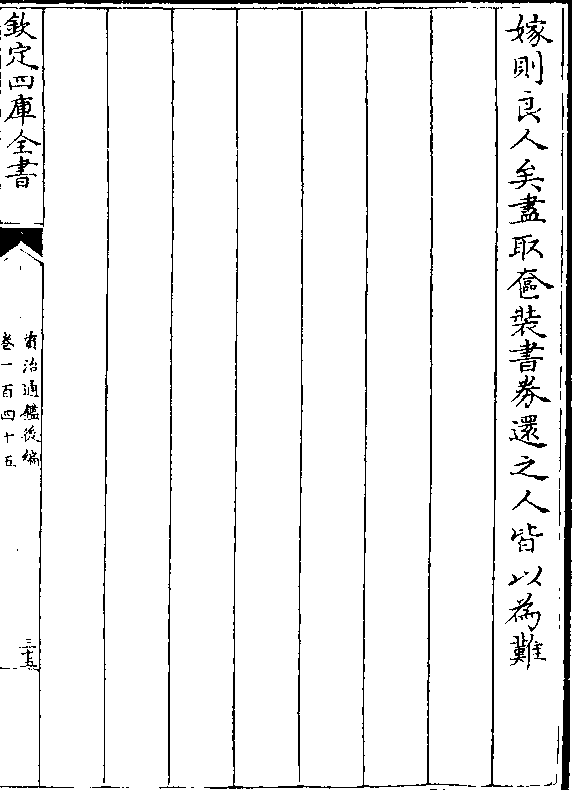 嫁則良人矣盡取奩装書券還之人皆以為難
欽定四庫全書
資治通鑑後編
卷一百四十五
三十五